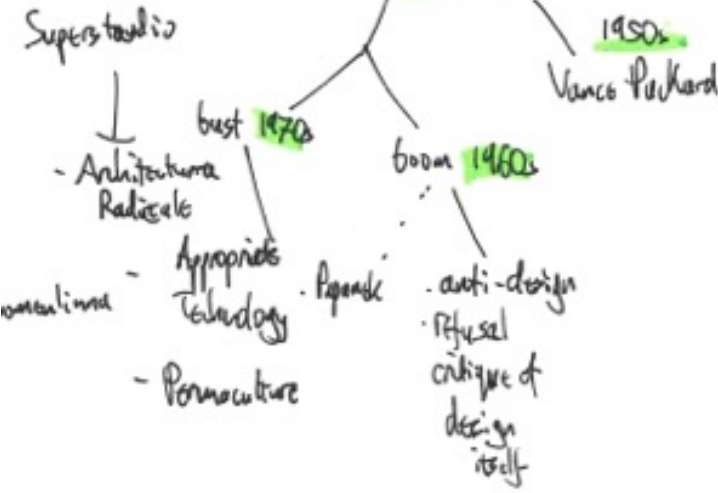 Superstudio
1950s
Vance Packard
bust 1970s
boom 1960s
- Architettura
Radicale
- Appropriate
Technology
. Papanek
- Permaculture
. anti-design
. refusal
critique of
design
itself